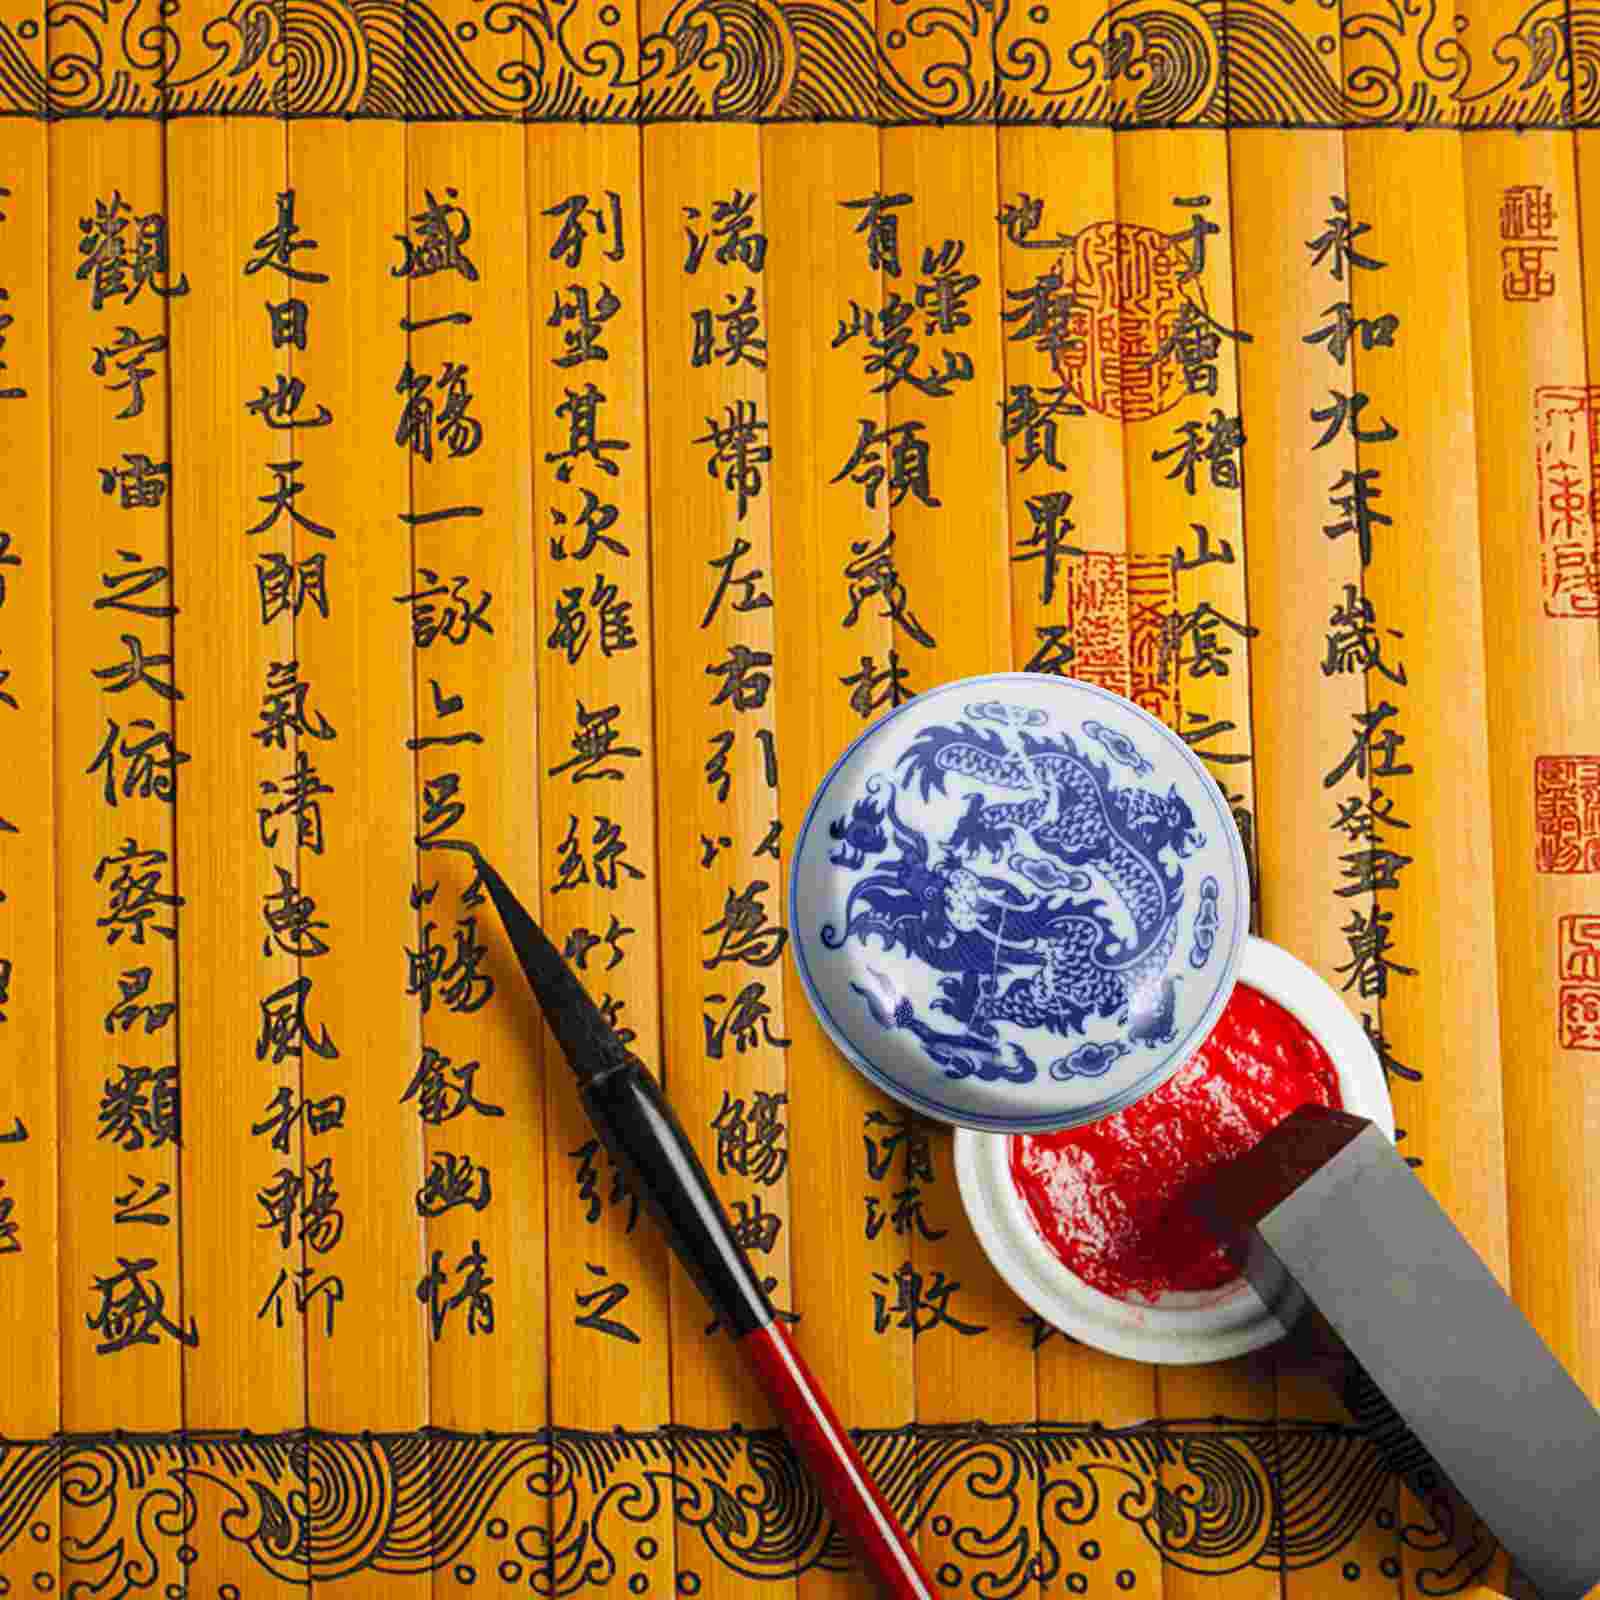 神品
永和九年歲在癸丑暮
于會稽山陰之
也羣賢畢至
有崇山峻領茂林
清流激
湍暎帶左右引以為流觴曲水
列坐其次雖無絲竹之
盛一觴一詠亦足以暢敘幽情
是日也天朗氣清惠風和暢仰
觀宇宙之大俯察品類之盛